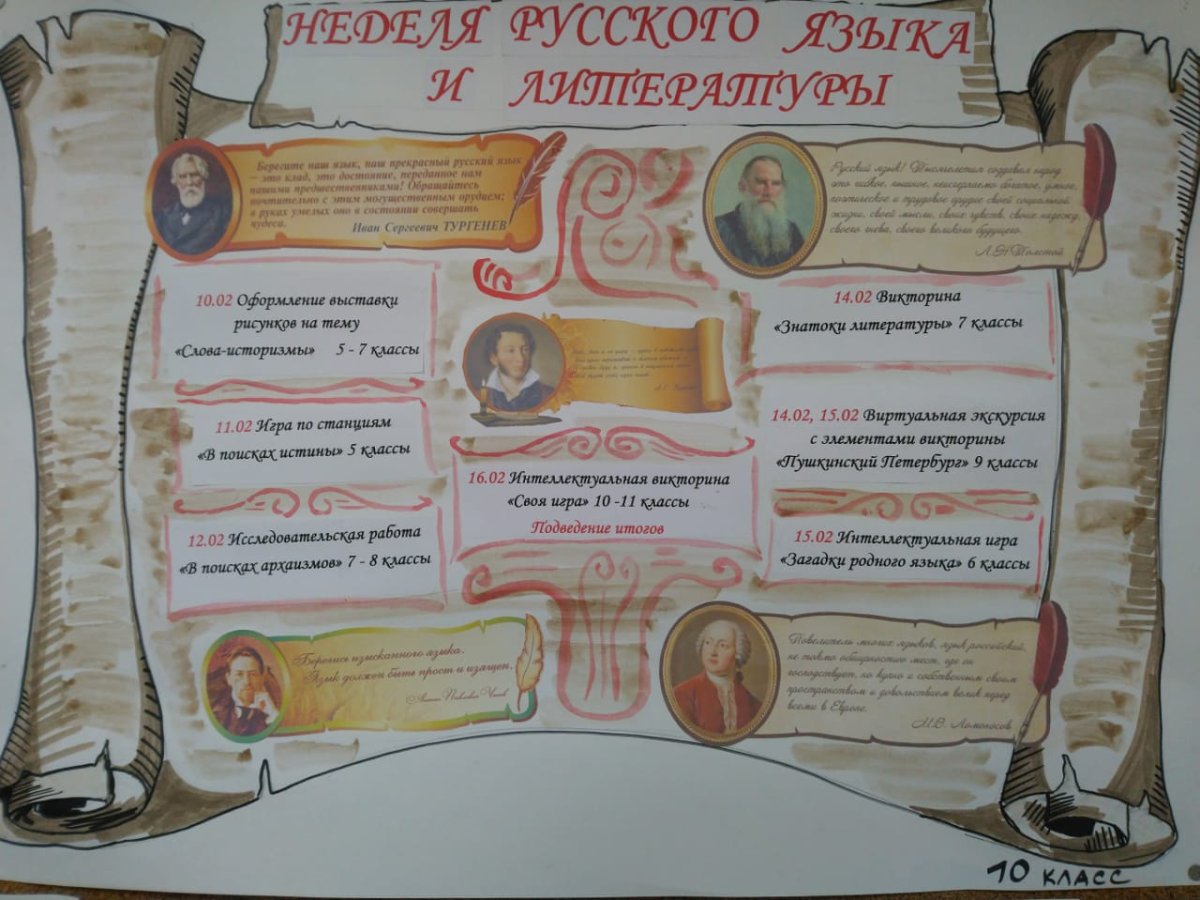 НЕДЕЛЯ РУССКОГО ЯЗЫКА
И ЛИТЕРАТУРЫ
Берегите наш язык, наш прекрасный русский язык
– это клад, это достояние, переданное нам
нашими предшественниками! Обращайтесь
почтительно с этим могущественным орудием;
в руках умелых оно в состоянии совершать
чудеса.
Иван Сергеевич ТУРГЕНЕВ
Русский язык! Тысячелетия создавал народ
это гибкое, пышное, неисчерпаемо богатое, умное,
поэтическое и трудовое орудие своей социальной
жизни, своей мысли, своих чувств, своих надежд,
своего гнева, своего великого будущего.
Л.Н.Толстой
10.02 Оформление выставки
рисунков на тему
«Слова-историзмы» 5 - 7 классы
11.02 Игра по станциям
«В поисках истины» 5 классы
12.02 Исследовательская работа
«В поисках архаизмов» 7 - 8 классы
16.02 Интеллектуальная викторина
«Своя игра» 10 -11 классы
Подведение итогов
14.02 Викторина
«Знатоки литературы» 7 классы
14.02, 15.02 Виртуальная экскурсия
с элементами викторины
«Пушкинский Петербург» 9 классы
15.02 Интеллектуальная игра
«Загадки родного языка» 6 классы
Берегись изысканного языка.
Язык должен быть прост и изящен.
Антон Павлович Чехов
Повелитель многих языков, язык российский,
не токмо обширностию мест, где он
господствует, но купно и собственным своим
пространством и довольствием велик перед
всеми в Европе.
М.В. Ломоносов
10 КЛАСС